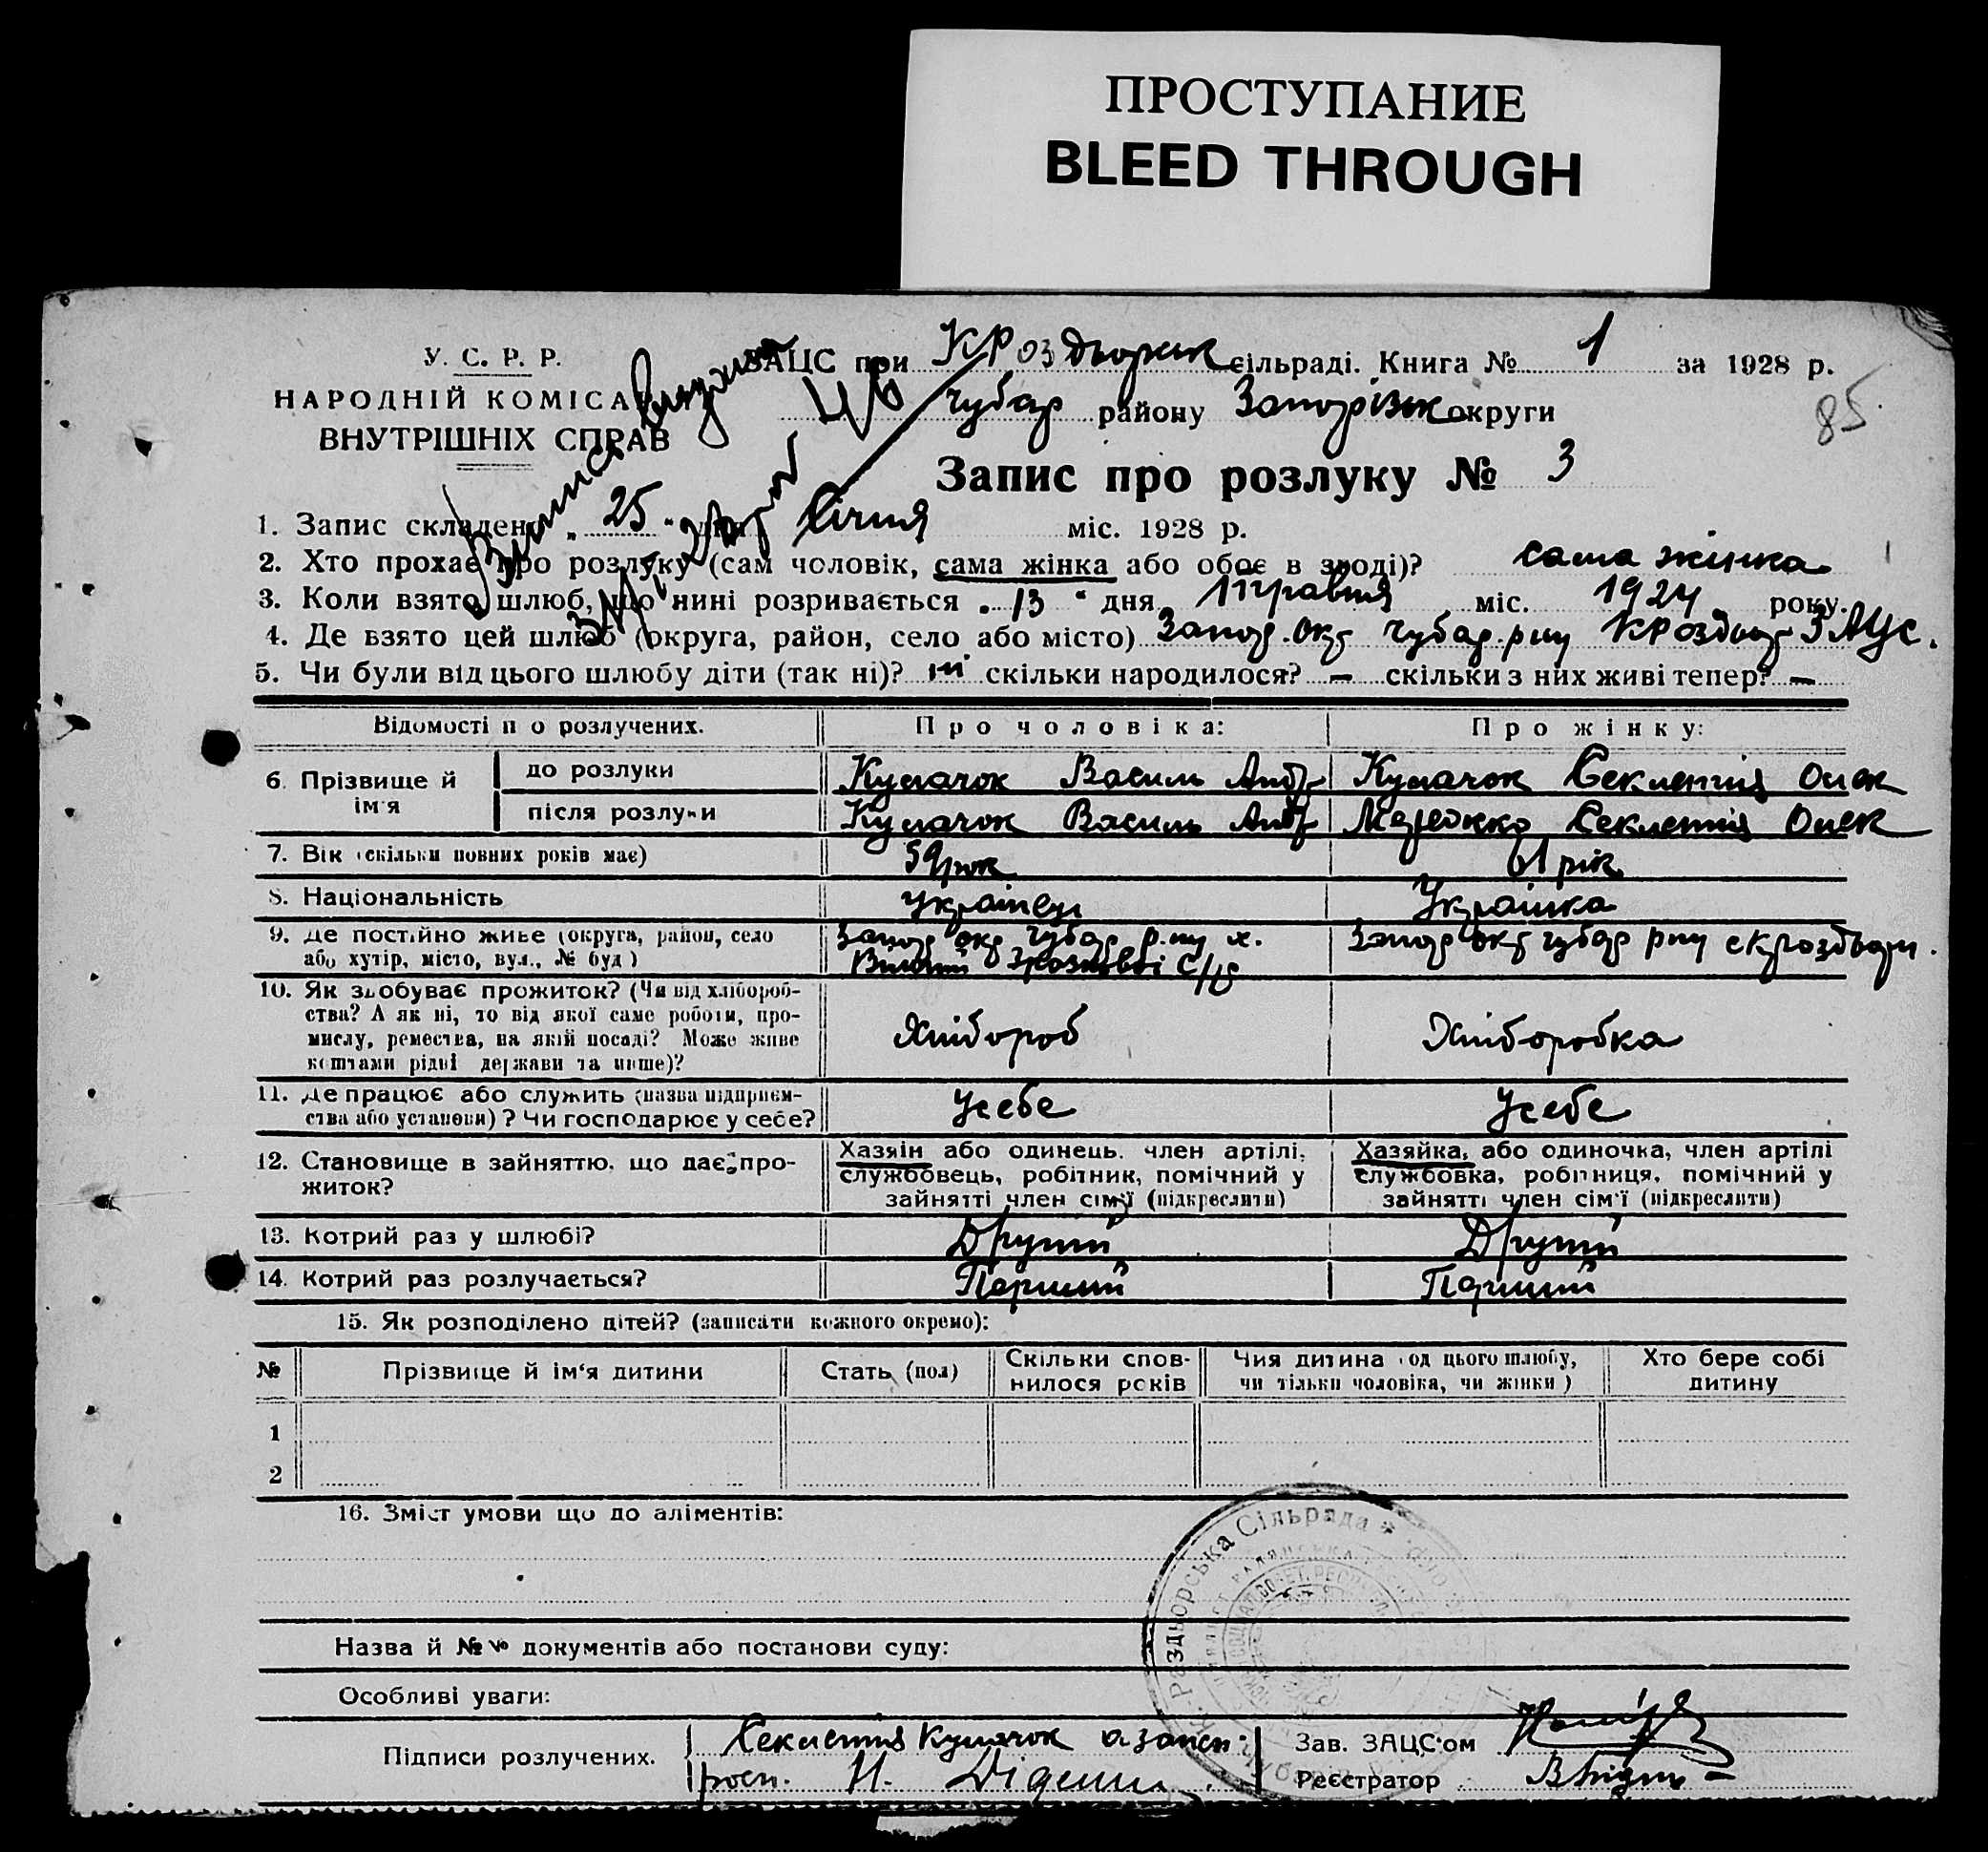 ПРОСТУПАНИЕ
BLEED THROUGH
У. С. Р. Р.
НАРОДНІЙ КОМІСА
ВНУТРІШНІХ СПРАВ
ЗАЦС при КРоздворск сільраді. Книга № 1 за 1928 р.
Чубар району Запорізьк округи
85
Запис про розлуку № 3
1. Запис складено „ 25 " дня Січня міс. 1928 р.
2. Хто прохає про розлуку (сам чоловік, сама жінка або обоє в згоді)? сама жінка
3. Коли взято шлюб, що нині розривається „ 13 " дня травня міс. 1924 року.
4. Де взято цей шлюб (округа, район, село або місто) Запор. окр Чубар. р-ну КРоздвор ЗАЦС.
5. Чи були від цього шлюбу діти (так ні)? ні скільки народилося? — скільки з них живі тепер? —
Відомості п о розлучених. Про чоловіка: Про жінку:
6. Прізвище й ім'я
до розлуки Кулачок Василь Андр Кулачок Секлетія Олек
після розлуки Кулачок Василь Андр Секлетія Олек
7. Вік (скільки повних років має) 59 рок 61 рік
8. Національність Українец Українка
9. Де постійно живе (округа, район, село або хутір, місто, вул., № буд) Запор окр Чубар р-ну х. С/р Запор окр Чубар р-ну с Кроздвори.
10. Як здобуває прожиток? (Чи від хлібороб-
ства? А як ні, то від якої саме роботи, про-
мислу, ремества, на якій посаді? Може живе
коштами рідні держави та инше)? Хлібороб Хліборобка
11. Де працює або служить (назва підприєм-
ства або установи)? Чи господарює у себе? Усебе Усебе
12. Становище в зайняттю, що дає про-
житок?
Хазяін або одинець, член артілі,
службовець, робітник, помічний у
зайнятті член сім'ї (підкреслити)
Хазяйка, або одиночка, член артілі
службовка, робітниця, помічний у
зайнятті член сім'ї (підкреслити)
13. Котрий раз у шлюбі? Другий Другий
14. Котрий раз розлучається? Перший Перший
15. Як розподілено дітей? (записати кожного окремо):
№ Прізвище й ім'я дитини Стать (пол) Скільки спов-
нилося років Чия дитина (од цього шлюбу,
чи тільки чоловіка, чи жінки) Хто бере собі
дитину
1
2
16. Зміст умови що до аліментів:
Роздьорська Сільрада *
Назва й №№ документів або постанови суду:
Особливі уваги:
Підписи розлучених. Секлетія Кулачок
росп. Н. Зав. ЗАЦС'ом
Реєстратор